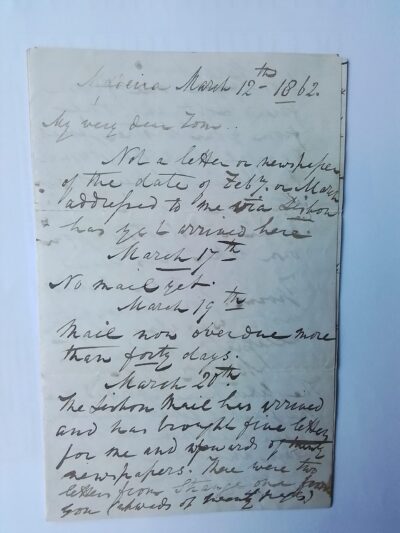 Madeira March 12th 1862.
My very dear Tom..
Not a letter or newspaper
of the date of Feby. or March
addressed to me via Lisbon
has yet arrived here.
March 17th
No mail yet.
March 19th
Mail now overdue more
than forty days.
March 20th.
The Lisbon Mail has arrived
and has brought five letters
for me and upwards of
newspapers. There were two
letters from one from
you (upwards of twenty